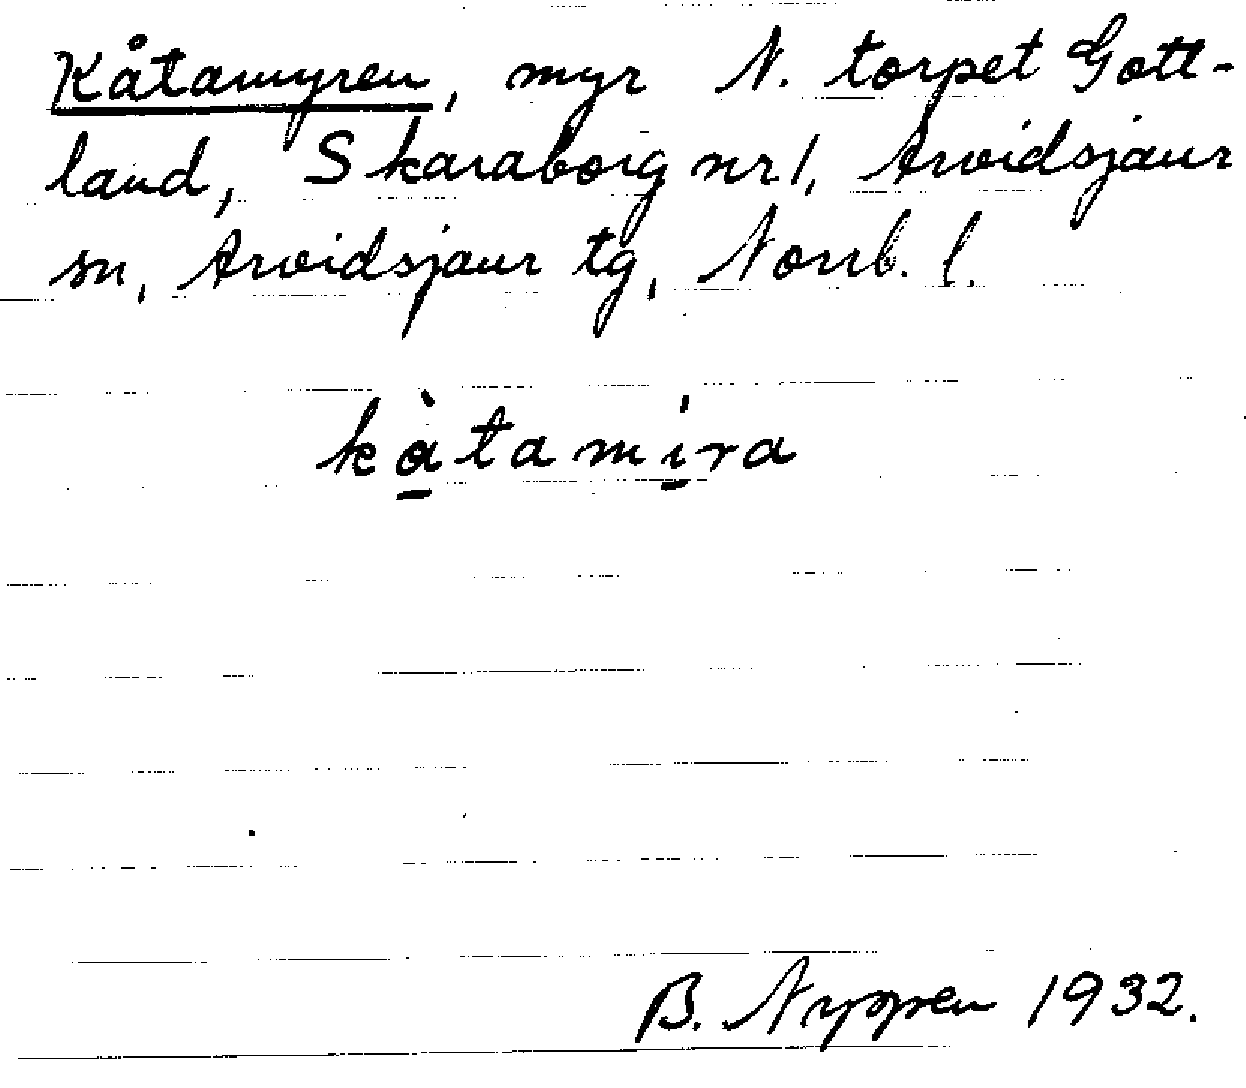 Kåtamyren, myr N. torpet Gott-
land, Skaraborg nr 1, Arvidsjaur
sn, Arvidsjaur tg, Norrb. l.
kàtamíra
B. Nyppen 1932.